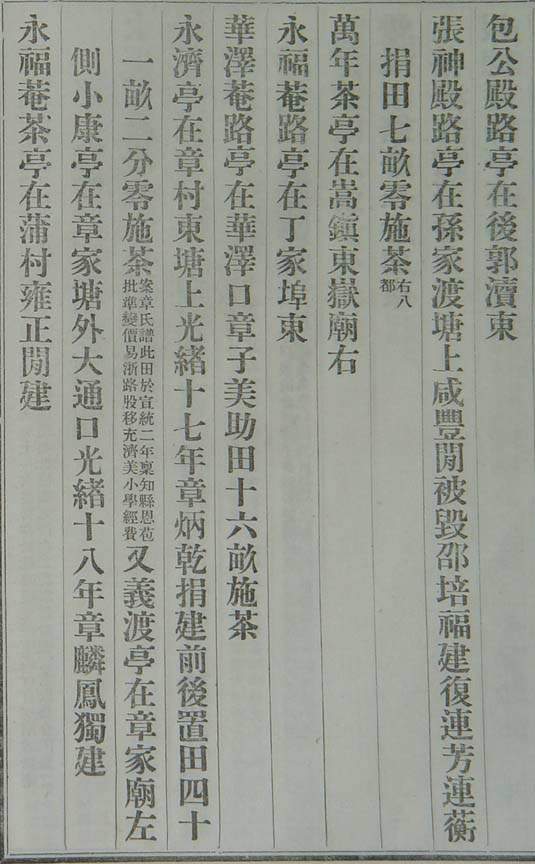 包公殿路亭在後郭瀆東
張神殿路亭在孫家渡塘上咸豐閒被毀邵培福建復連芳連蘅
捐田七畝零施茶右八都
萬年茶亭在嵩鎮東嶽廟右
永福菴路亭在丁家埠東
華澤菴路亭在華澤口章子美助田十六畝施茶
永濟亭在章村東塘上光緒十七年章炳乾捐建前後置田四十
一畝二分零施茶案章氏譜此田於宣統二年稟知縣恩苞批準變價易浙路股移充濟美小學經費又義渡亭在章家廟左
側小康亭在章家塘外大通口光緒十八年章麟鳳獨建
永福菴茶亭在蒲村雍正閒建